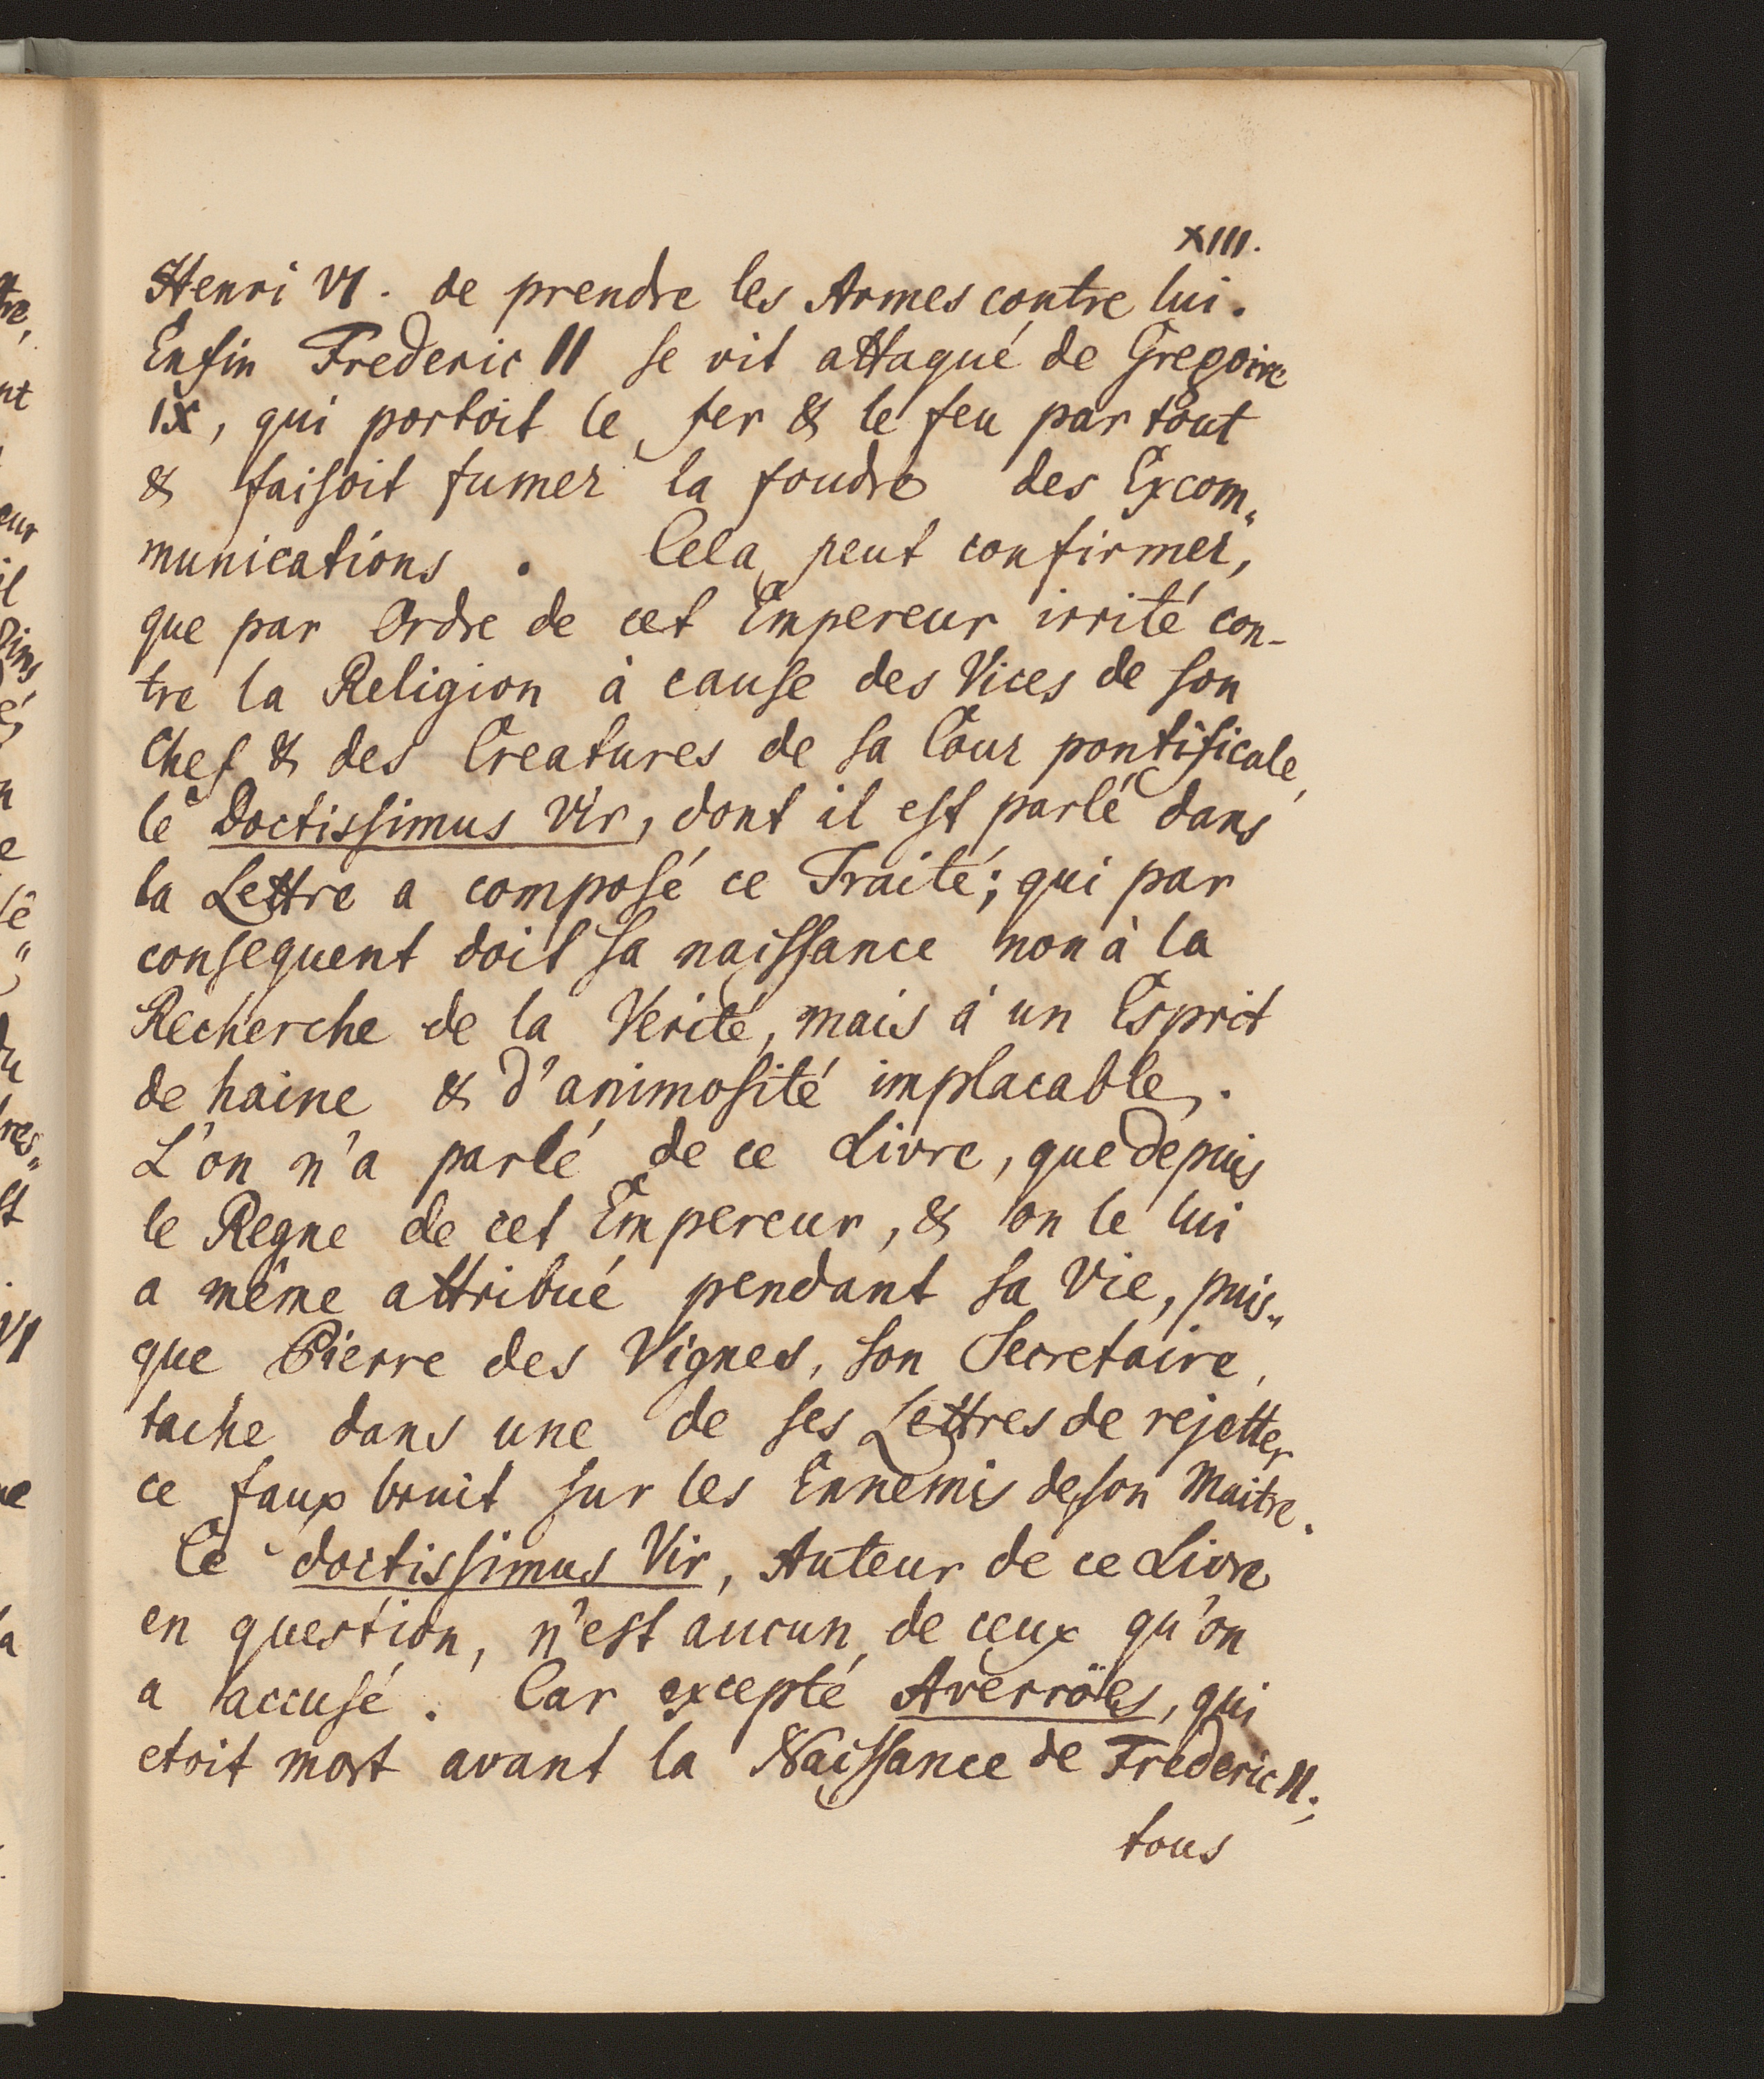 XIII.
Henri VI. de prendre les Armes contre lui.
Enfin Frederic II se vit attaqué de Gregoire
IX, qui portoit le fer & le feu par tout
& faisoit fumer la foudre des Excom„
munications. Cela peut confirmer,
que par Ordre de cet Empereur irrité con-
tre la Religion à cause des Vices de son
Chef & des Creatures de sa Cour pontificale,
le Doctissimus Vir, dont il est parlé dans
la Lettre a composé ce Traité; qui par
consequent doit sa naissance non à la
Recherche de la Verité, mais à un Esprit
de haine & d'animosité implacable.
L'on n'a parlé de ce Livre, que depuis
le Regne de cet Empereur, & on le lui
a même attribué pendant sa Vie, puis„
que Pierre des Vignes, son Secretaire,
tache dans une de ses Lettres de rejetter
ce faux bruit sur les Ennemis de son Maitre.
Ce doctissimus Vir, Auteur de ce Livre
en question, n'est aucun de ceux qu'on
a accusé. Car excepté Averröes, qui
etoit mort avant la Naissance de Frederic II.;
tous